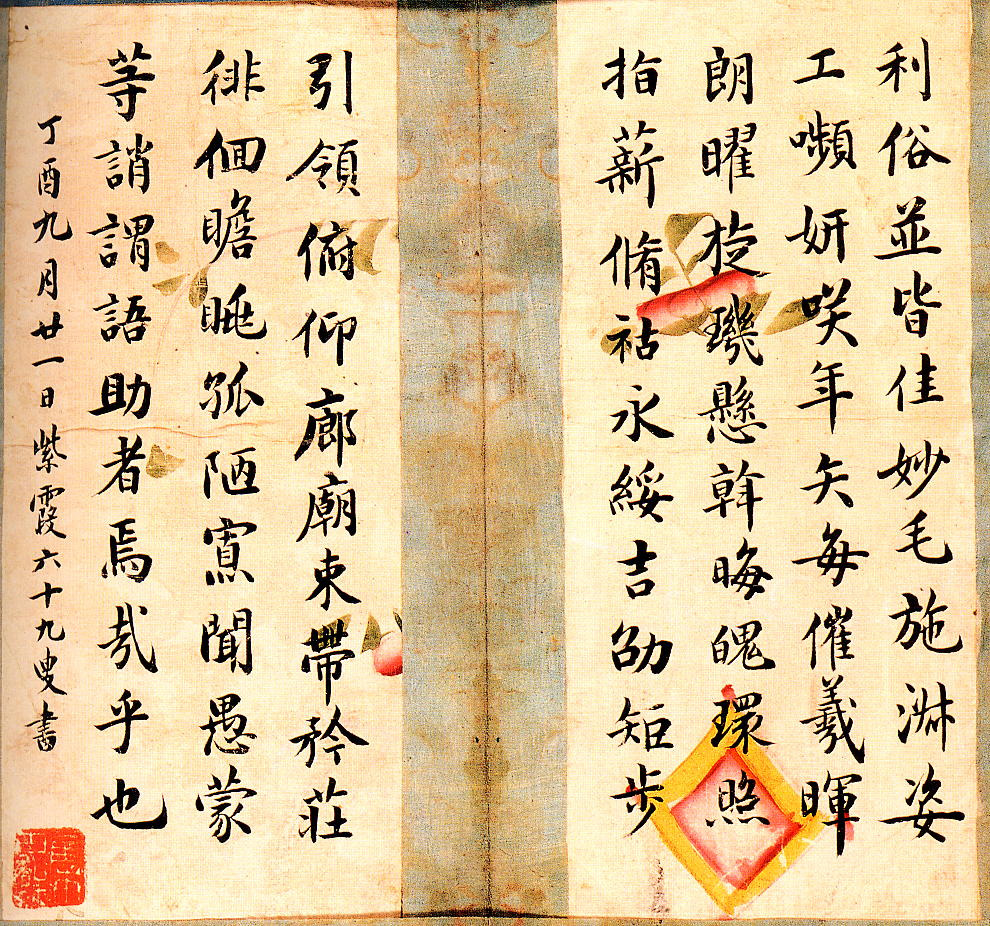 利俗並皆佳妙毛施淋姿
工嚬妍咲年矢每催羲暉
朗曜旋璣懸斡晦魄環照
指薪脩祜永綏吉劭矩步
引領俯仰廊廟束帶矜莊
徘徊瞻眺孤陋寡聞愚蒙
等誚謂語助者焉哉乎也
丁酉九月廿一日紫霞六十九叟書